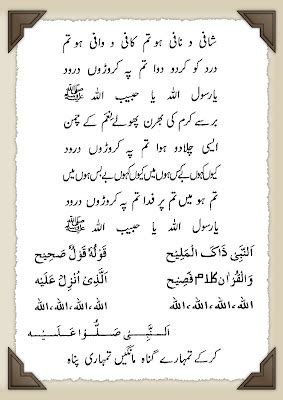 شافی و نافی ہو تم کافی و وافی ہو تم
درد کو کردو دوا تم پہ کروڑوں درود
یارسول اللہ یا حبیب اللہ ﷺ
برسے کرم کی بھرن پھولے نعم کے چمن
ایسی چلادو ہوا تم پہ کروڑوں درود
کیوں کہوں بےکس ہوں میں کیوں کہوں بےبس ہوں میں
تم ہو میں تم پر فدا تم پہ کروڑوں درود
یارسول اللہ یا حبیب اللہ ﷺ
اَلنَّبِیْ ذَاکَ الْمَلِیْحْ قَوْلُهٗ قَوْلٌ صَحِیْحْ
وَالْقُرْاٰن کَلَامْ فَصِیْح اَلَّذِیْ اُنْزِلْ عَلَیْه
اللہ،اللہ،اللہ،اللہ اللہ،اللہ،اللہ،اللہ
اَلنَّبِیْ صَلُّوْا عَلَیْه
کرکے تمہارے گناہ مانگیں تمہاری پناہ